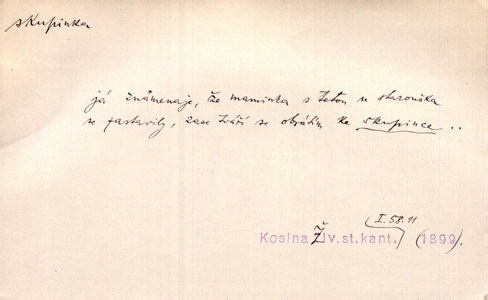 skupinka
já znamenaje, že maminka s tetou u staroušка
se zastavily, zase tváří se obrátím ke skupince ..
I. 58. 11
Kosina Živ. st. kant. (1899).